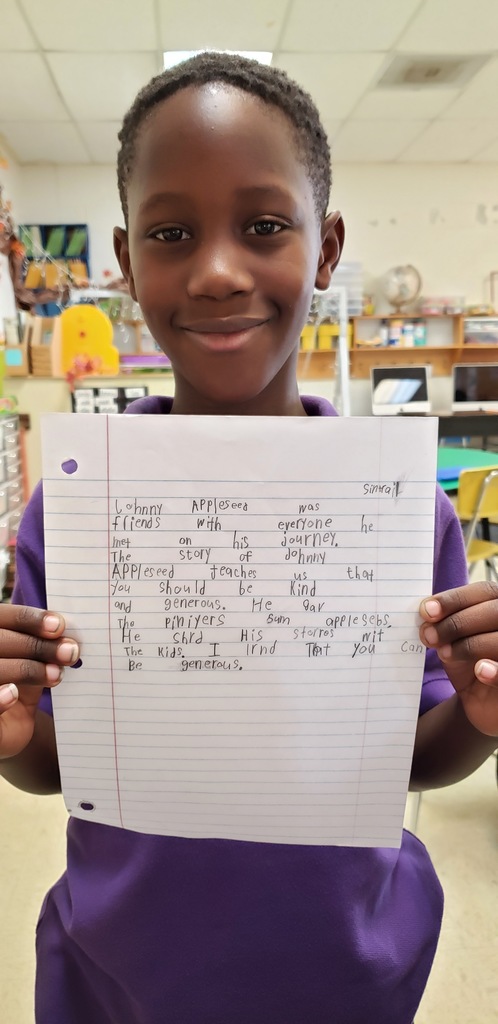 Sintrail
Johnny Appleseed was
friends with everyone he
met on his Journey.
The story of Johnny
Appleseed teaches us that
you should be kind
and generous. He gav
The piniyers sum applesebs.
He shrd His storros wit
The Kids. I lrnd That you can
Be generous.